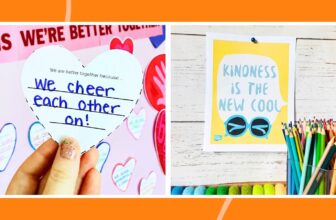 IS WE'RE BETTER TOGETHER
We are better together because...
We cheer
each other
on!
KINDNESS
IS THE
NEW COOL